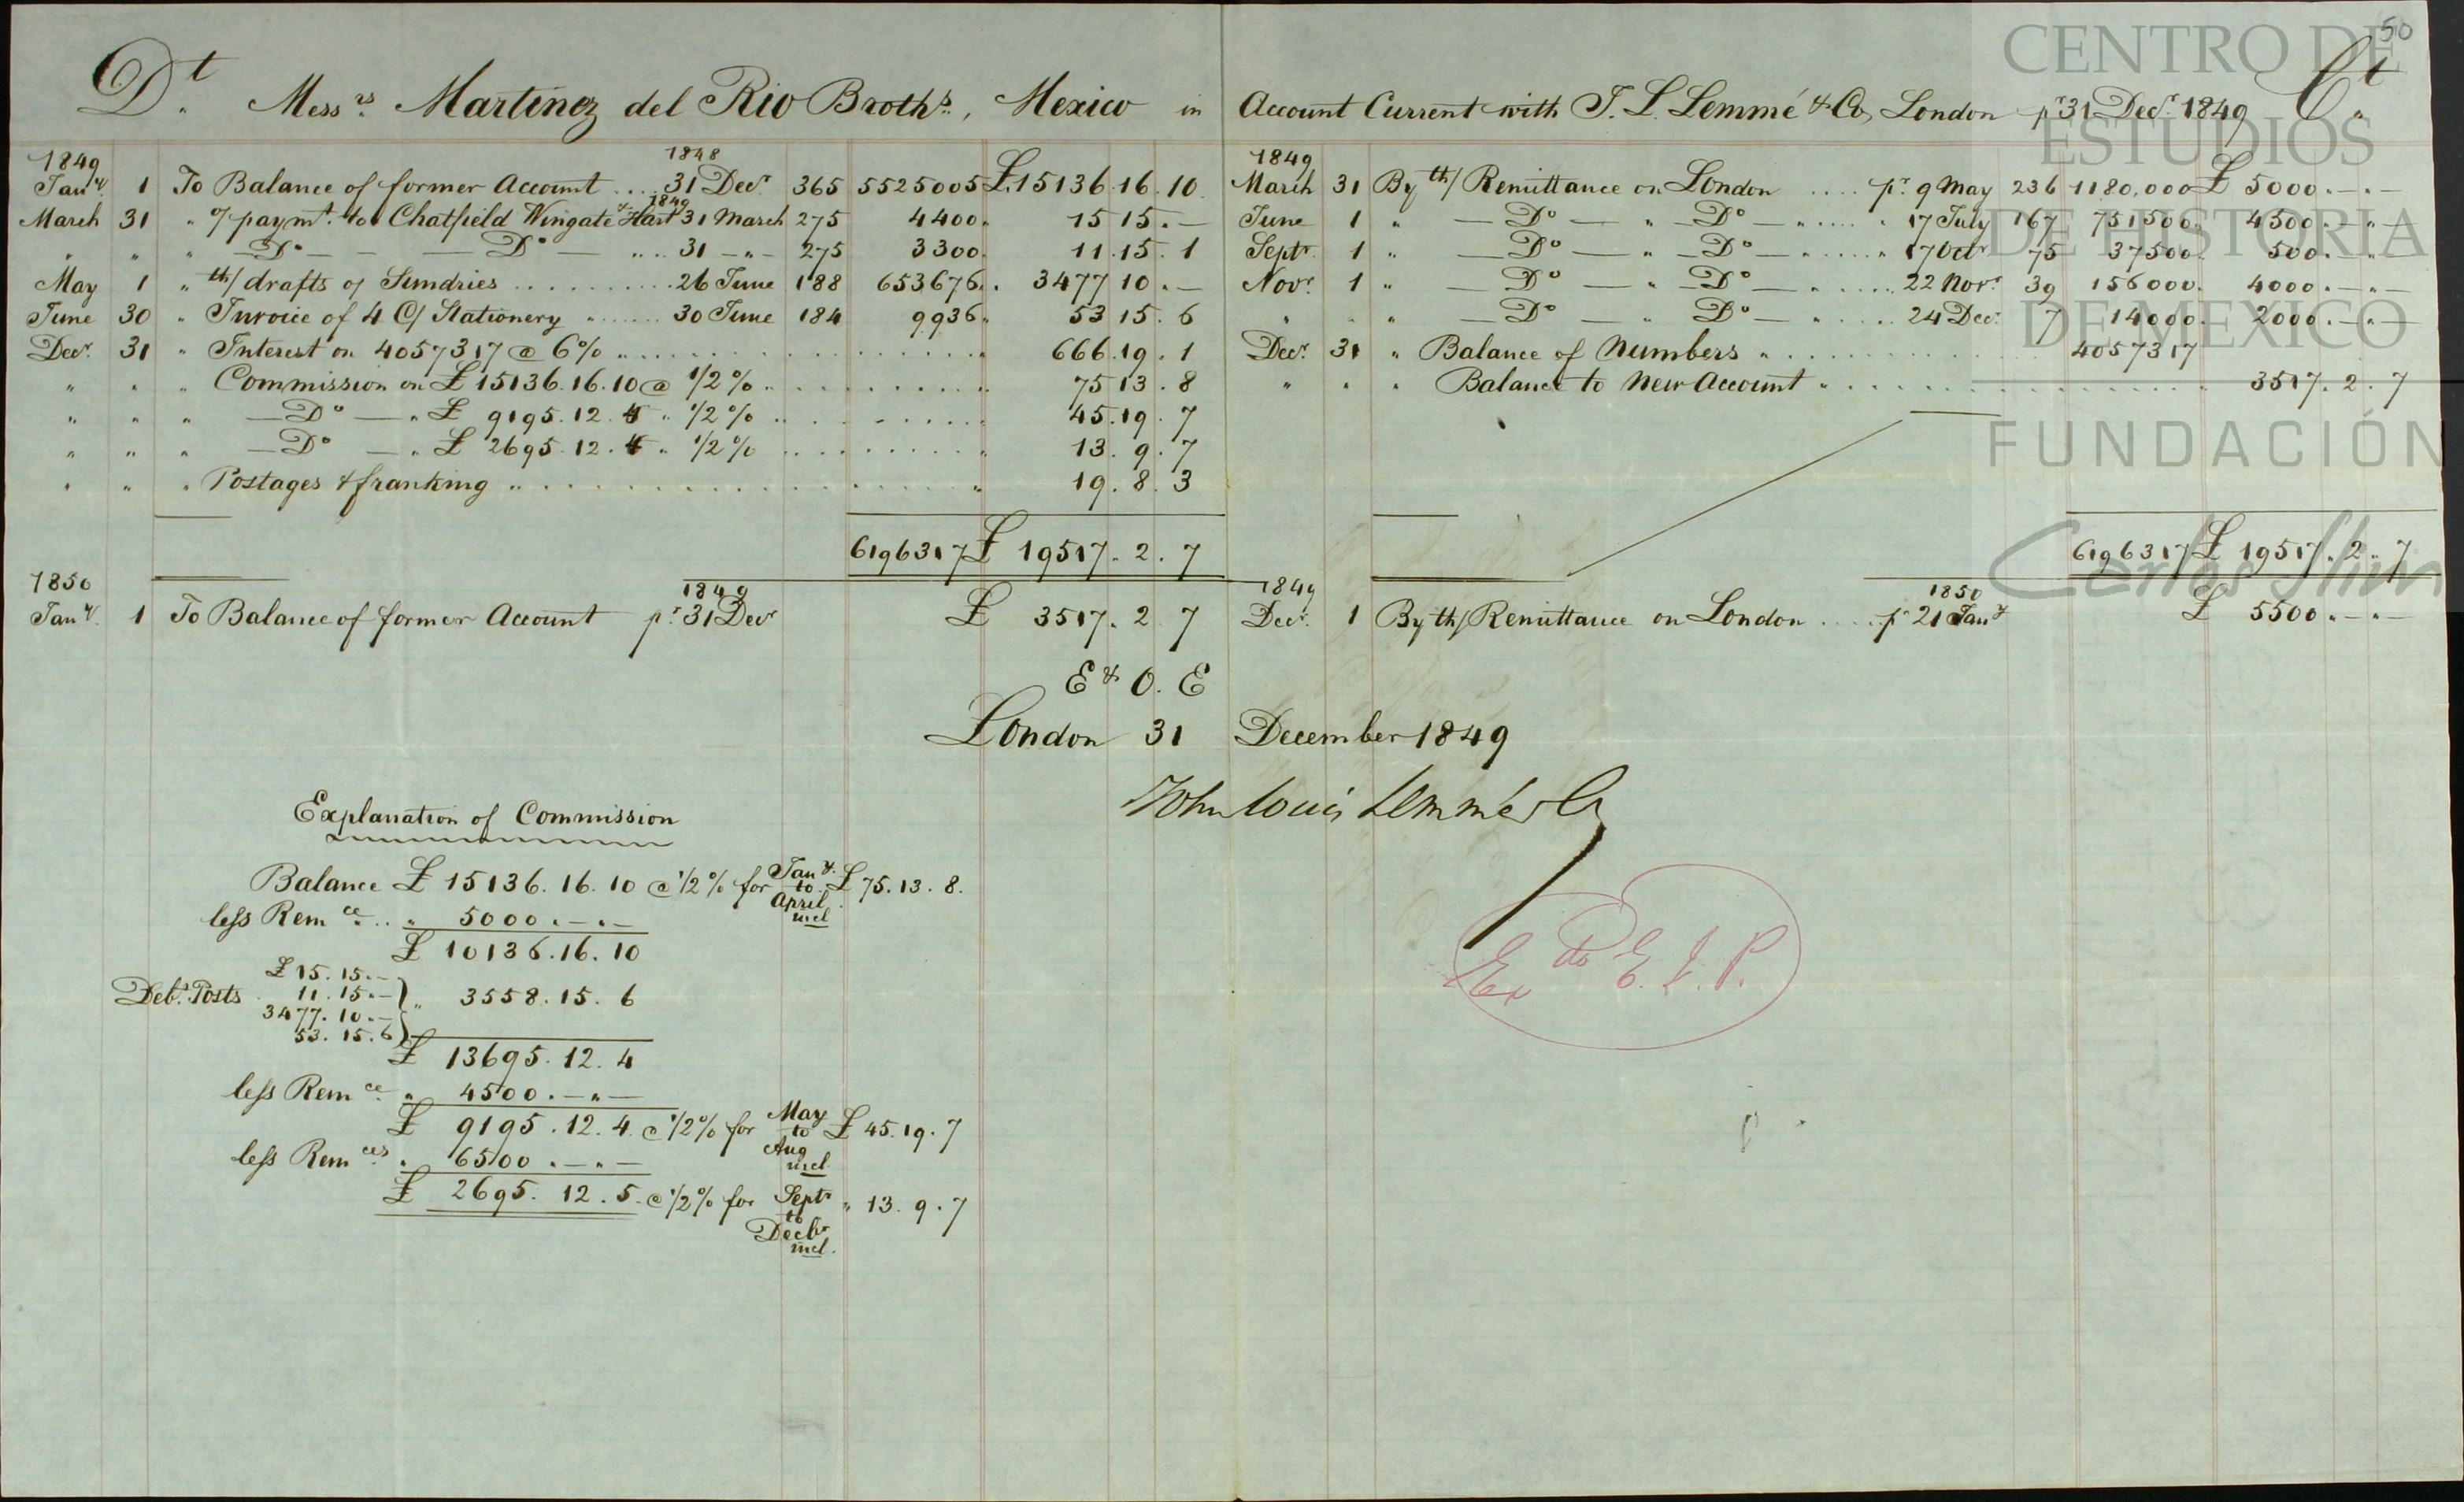 50
Dt. Messrs. Martinez del Rio Brothrs., Mexico in Account Current with J. L. Lemmé & Co, London pr 31 Decr. 1849 Ct.
1849 1848
Jany. 1 To Balance of former Account .... 31 Decr. 365 5525005 £ 15136.16.10
1849
March 31 " paymt. to Chatfield Wingate & Hart 31 March 275 4400 " 15 15. —
" " " — Do — — Do — " .. 31 — " — 275 3300 11.15.1
May 1 " th/ drafts of Sundries .......... 26 June 188 653676 .. 3477 10. —
June 30 " Invoice of 4 C/ Stationery " ...... 30 June 184 9936 " 53 15.6
Decr. 31 " Interest on 4057317 @ 6% " .......... 666.19.1
" " " Commission on £ 15136.16.10 @ 1/2 % " .......... 75 13.8
" " " — Do — " £ 9195.12.4 " 1/2 % .......... 45.19.7
" " " — Do — " £ 2695.12.4 " 1/2 % .......... 13.9.7
" " " Postages & franking " .......... 19.8.3
6196317 £ 19517.2.7
1850 1849
Jany. 1 To Balance of former Account pr. 31 Decr £ 3517.2 7
1849
March 31 By th/ Remittance on London .... pr. 9 May 236 1180,000 £ 5000.—.—
June 1 " — Do — " — Do — " ..... " 17 July 167 751500. 4500.—"—
Septr. 1 " — Do — " — Do — " ..... " 17 Octr 75 37500. 500. " —
Novr. 1 " — Do — " — Do — " ..... 22 Novr. 39 156000. 4000.—"—
" " " — Do — " Do — " .... 24 Decr. 7 14000. 2000.—"—
Decr. 31 " Balance of Numbers " .......... 4057317
" " " Balance to New Account " .......... 3517.2.7
6196317 £ 19517.2.7
1849 1850
Decr. 1 By th/ Remittance on London .... pr 21 Jany £ 5500.—"—
E & O. E
London 31 December 1849
John Louis Lemmé & Co
Explanation of Commission
Balance £ 15136.16.10 @ 1/2 % for Jany. to April incl £ 75.13.8.
less Remce. .. " 5000.—"—
£ 10136.16.10
Debt. Posts £ 15.15.—
11.15.—
3477.10.—
53.15.6
" 3558.15.6
£ 13695.12.4
less Remce " 4500.—"—
£ 9195.12.4. @ 1/2 % for May to Aug incl. £ 45.19.7
less Remces. " 6500.—"—
£ 2695.12.5. @ 1/2 % for Septr to Decbr incl. " 13.9.7
CENTRO DE
ESTUDIOS
DE HISTORIA
DE MEXICO
FUNDACIÓN
Carlos Slim